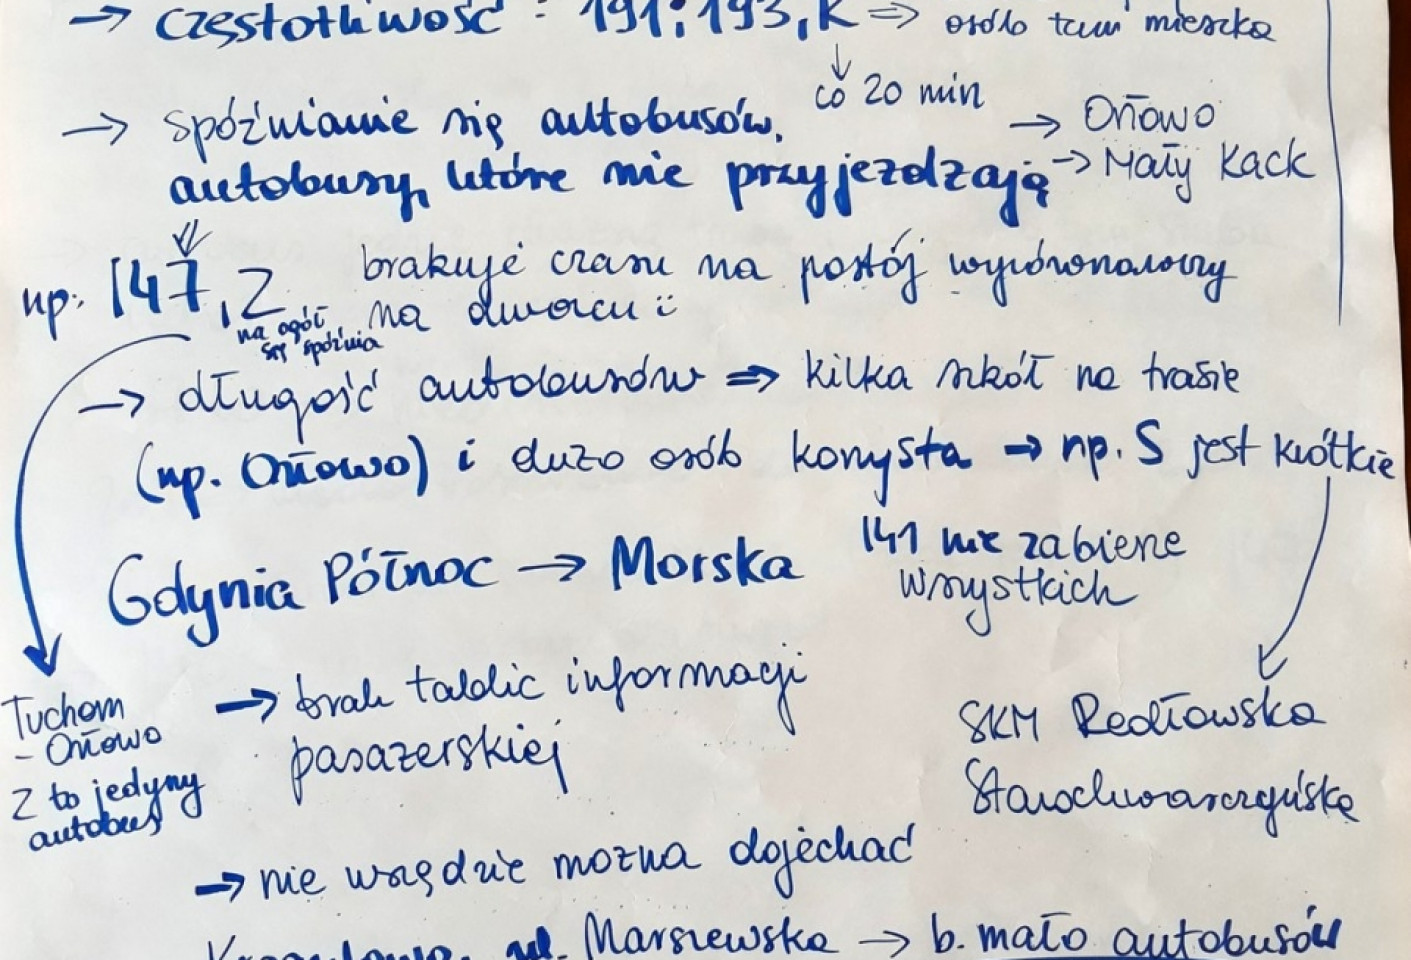 → częstotliwość : 191, 193, K ⇒ osób tam mieszka
↓
co 20 min
→ spóźnianie się autobusów,
autobusy, które nie przyjeżdzają
→ Orłowo
→ Mały Kack
np: 147, Z
na ogół
się spóźnia
brakuje czasu na postój wyrównawczy
na dworcu ii
→ długość autobusów ⇒ kilka szkół na trasie
(np. Orłowo) i dużo osób korzysta → np. S jest krótkie
141 nie zabierze
wszystkich
Gdynia Północ → Morska
Tuchom
- Orłowo
Z to jedyny
autobus
→ brak tablic informacji
pasażerskiej
SKM Redłowska
Starochwaszczyńska
→ nie wszędzie można dojechać
ul. Marszewska → b. mało autobusów